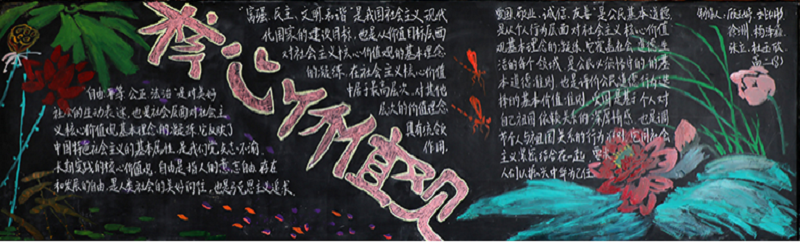 核心价值观
自由 平等 公正 法治 是对美好
社会的生动表述,也是从社会层面对社会主
义核心价值观基本理念的凝练,它反映了
中国特色社会主义的基本属性,是我们党矢志不渝
长期实践的核心价值观,自由是指人的意志自由,存在
和发展的自由,是人类社会的美好向往,也是马克思主义追求
"富强、民主、文明、和谐"是我国社会主义现代
化国家的建设目标,也是从价值目标层面
对社会主义核心价值观的基本理念
的凝练,在社会主义核心价值
中居于最高层次,对其他
层次的价值理念
具有统领
作用
爱国、敬业、诚信、友善"是公民基本道德
是从个人行为层面对社会主义核心价值
观基本理念的凝练,它覆盖社会道德生
活的各个领域,是公民必须恪守的
基本道德准则,也是评价公民道德行为选
择的基本价值准则,爱国是基于个人对
自己祖国依赖关系的深厚情感,也是调
节个人与祖国关系的行为准则,它同社会
主义紧密结合在一起